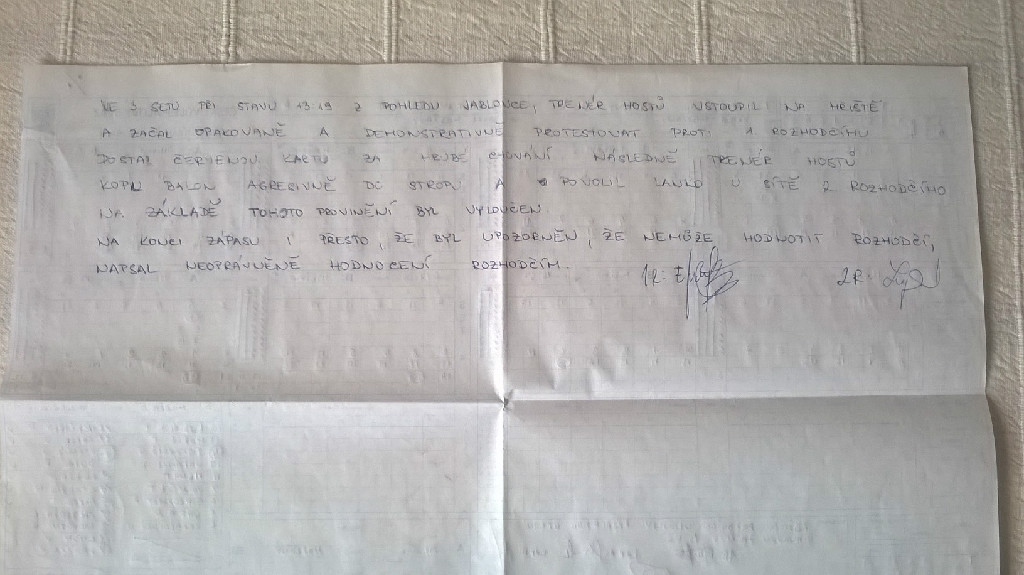 VE 3 SETU PŘI STAVU 13:19 Z POHLEDU JABLONCE, TRENÉR HOSTŮ VSTOUPIL NA HŘIŠTĚ
A ZAČAL OPAKOVANĚ A DEMONSTRATIVNĚ PROTESTOVAT PROTI 1 ROZHODČÍMU
DOSTAL ČERVENOU KARTU ZA HRUBÉ CHOVÁNÍ NÁSLEDNĚ TRENÉR HOSTŮ
KOPL BALON AGRESIVNĚ DO STROPU A POVOLIL LANKO U SÍTĚ 2 ROZHODČÍHO
NA ZÁKLADĚ TOHOTO PROVINĚNÍ BYL VYLOUČEN
NA KONCI ZÁPASU I PŘESTO, ŽE BYL UPOZORNĚN, ŽE NEMŮŽE HODNOTIT ROZHODČÍ,
NAPSAL NEOPRÁVNĚNĚ HODNOCENÍ ROZHODČÍM. 1R: 2R: